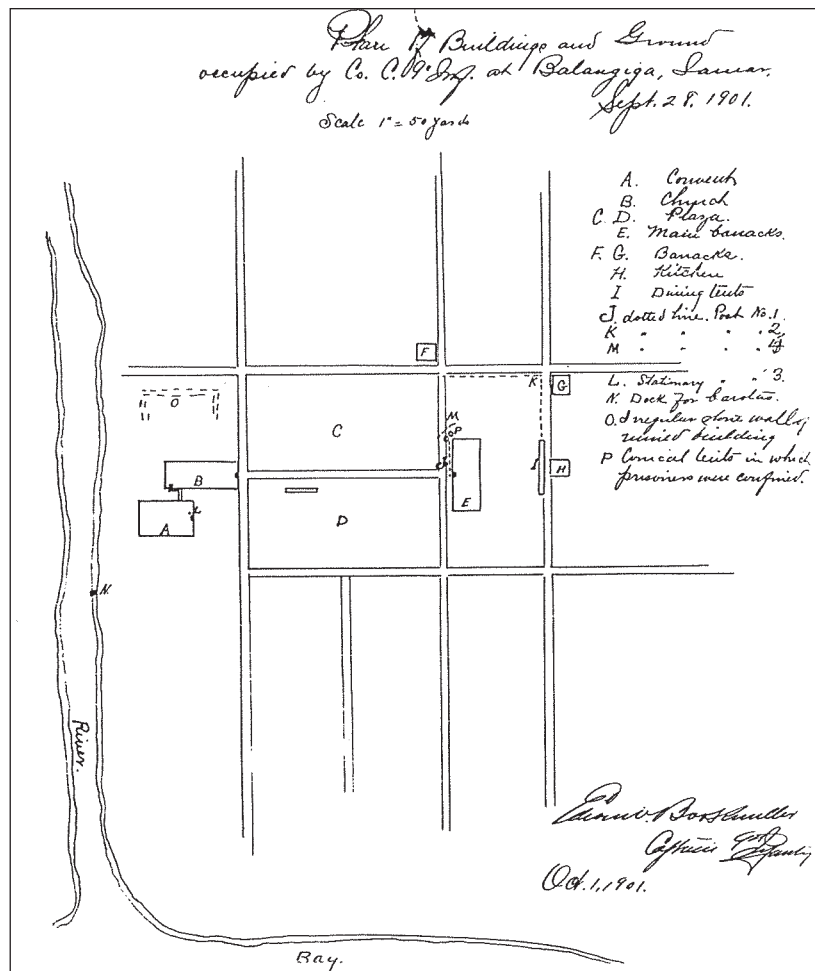 Plan of Buildings and Ground
occupied by Co. C. 9" Inf. at Balangiga, Samar.
Sept. 28. 1901.
Scale 1" = 50 yards
A. Convent
B. Church
C. D. Plaza.
E. Main barracks.
F. G. Barracks.
H. Kitchen
I Dining tents
J. dotted line. Post No. 1.
K " " " " 2,
M " " " " 4
L. Stationary " " 3.
N. Dock for barotos.
O. Irregular stone walls of
ruined building
P Conical tents in which
prisoners were confined.
F
K
G
O
C
M
P
B
J
I
H
L
A
D
E
N.
River.
Captain 9th Infantry
Oct. 1, 1901.
Bay.